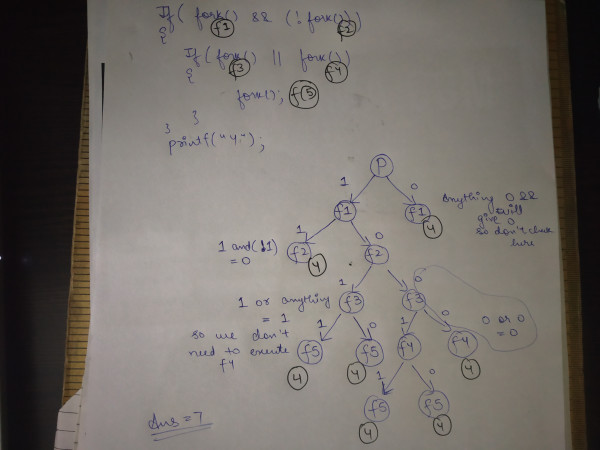 If( fork() && (!fork())
f1 f1
{
If( fork() || fork())
f3 f4
{
fork(); f(5
}
}
printf("4");
P
1 0
f1 f1
4
Anything 0 &&
will
give 0
so don't check
here
1 0
1 and(!1)
= 0
f2 f2
4
1 0
1 or anything
= 1
so we don't
need to execute
f4
f3 f3
1 0 1 0
0 or 0
= 0
f5 f5 f4 f4
4 4 4
1 0
f5 f5
4 4
Ans = 7